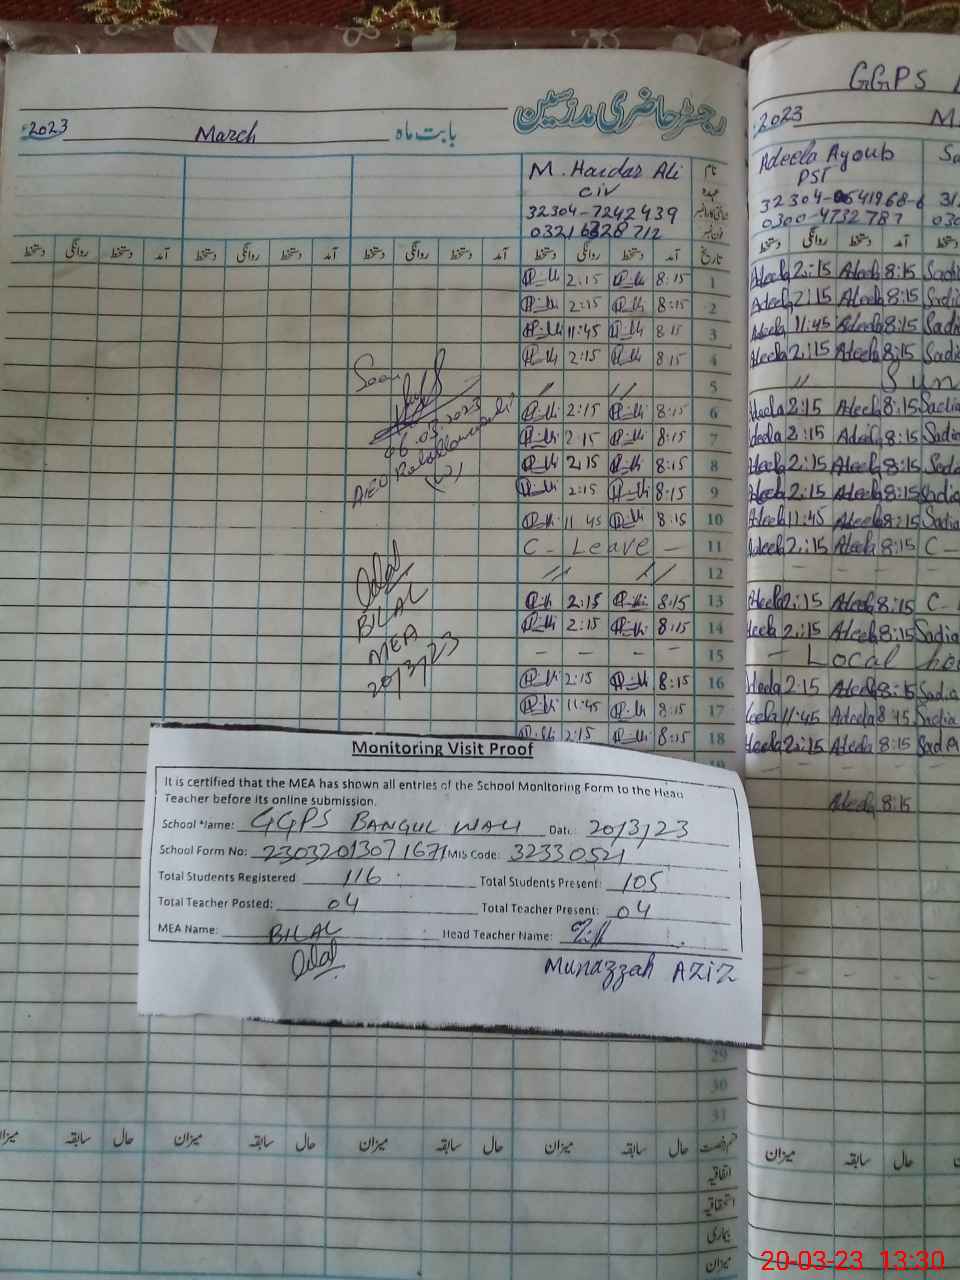 رجسٹر حاضری مدرسین
2023ء March بابت ماہ
نام M. Haidar Ali
عہدہ C.IV
32304-7242439
فون نمبر 03216328712
تاریخ آمد دستخط روانگی دستخط آمد دستخط روانگی دستخط آمد دستخط روانگی دستخط
1 8:15 2:15
2 8:15 2:15
3 8:15 11:45
4 8:15 2:15
5 // //
6 8:15 2:15
7 8:15 2:15
8 8:15 2:15
9 8:15 2:15
10 8:15 11:45
11 C - Leave -
12 // //
13 8:15 2:15
14 8:15 2:15
15 - - - -
16 8:15 2:15
17 8:15 11:45
18 8:15 2:15
06.03.2023
AEO
Bilal
BILAL
MEA
20/3/23
Monitoring Visit Proof
It is certified that the MEA has shown all entries of the School Monitoring Form to the Head
Teacher before its online submission.
School Name: GGPS BANGUL WALI Date: 20/3/23
School Form No: 23032013071671 MIS Code: 32330521
Total Students Registered 116 Total Students Present: 105
Total Teacher Posted: 04 Total Teacher Present: 04
MEA Name: BILAL Head Teacher Name:
Bilal Munazzah AZIZ
29
30
31
قسم رخصت حال سابقہ میزان حال سابقہ میزان حال سابقہ میزان حال سابقہ میزان
اتفاقیہ
استحقاقیہ
بیماری
میزان
GGPS
2023 M
Adeela Ayoub
PST
0300-4732787
آمد دستخط روانگی دستخط
Adeela 2:15 Adeela 8:15 Sadia
Adeela 2:15 Adeela 8:15 Sadia
Adeela 11:45 Adeela 8:15 Sadia
Adeela 2:15 Adeela 8:15 Sadia
// Sun
Adeela 2:15 Adeela 8:15 Sadia
Adeela 2:15 Adeela 8:15 Sadia
Adeela 2:15 Adeela 8:15 Sadia
Adeela 2:15 Adeela 8:15 Sadia
Adeela 11:45 Adeela 8:15 Sadia
Adeela 2:15 Adeela 8:15 C -
Adeela 2:15 Adeela 8:15 C -
Adeela 2:15 Adeela 8:15 Sadia
- Local ho
Adeela 2:15 Adeela 8:15 Sadia
Adeela 11:45 Adeela 8:45 Sadia
Adeela 2:15 Adeela 8:15 Sadia
Adeela 8:15
میزان سابقہ حال
20-03-23 13:30